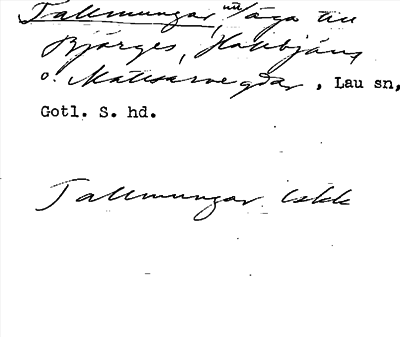 Tallmungar, utl/äga till
Bjärges, Hallbjäns
o. Mattsarve gdar, Lau sn,
Gotl. S. hd.
Tallmungar